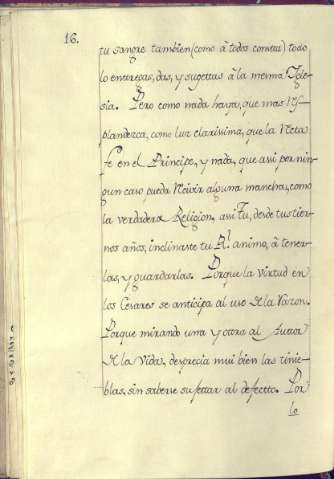 16.
tu sangre tambien (como à todos consta) todo
lo entregas, das, y sugettas à la mesma Igle-
sia. Pero como nada haya, que mas res-
plandezca, como luz clarissima, que la Recta
Fe en el Principe, y nada, que assi por nin-
gun caso pueda recivir alguna mancha, como
la verdadera Religion, assi Tu, desde tus tier-
nos años, inclinaste tu Rl. animo, à tener-
las, y guardarlas. Porque la Virtud en
los Cesares se anticipa al uso de la razon.
Porque mirando una y otra al Auttor
de la Vida, desprecia mui bien las tinie-
blas, sin saberse sujettar al defectto. Por
lo